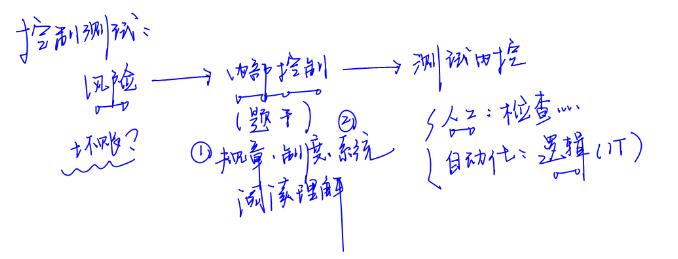 控制测试:
风险 → 内部控制 → 测试内控
(题干) ②
坏账? ① 规章.制度.系统
阅读理解
人工: 检查...
自动化: 逻辑 (IT)